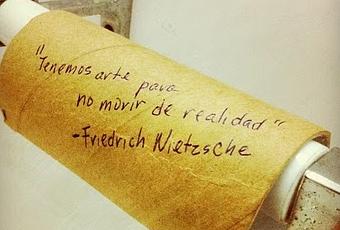 "Tenemos arte para
no morir de realidad"
-Friedrich Nietzsche